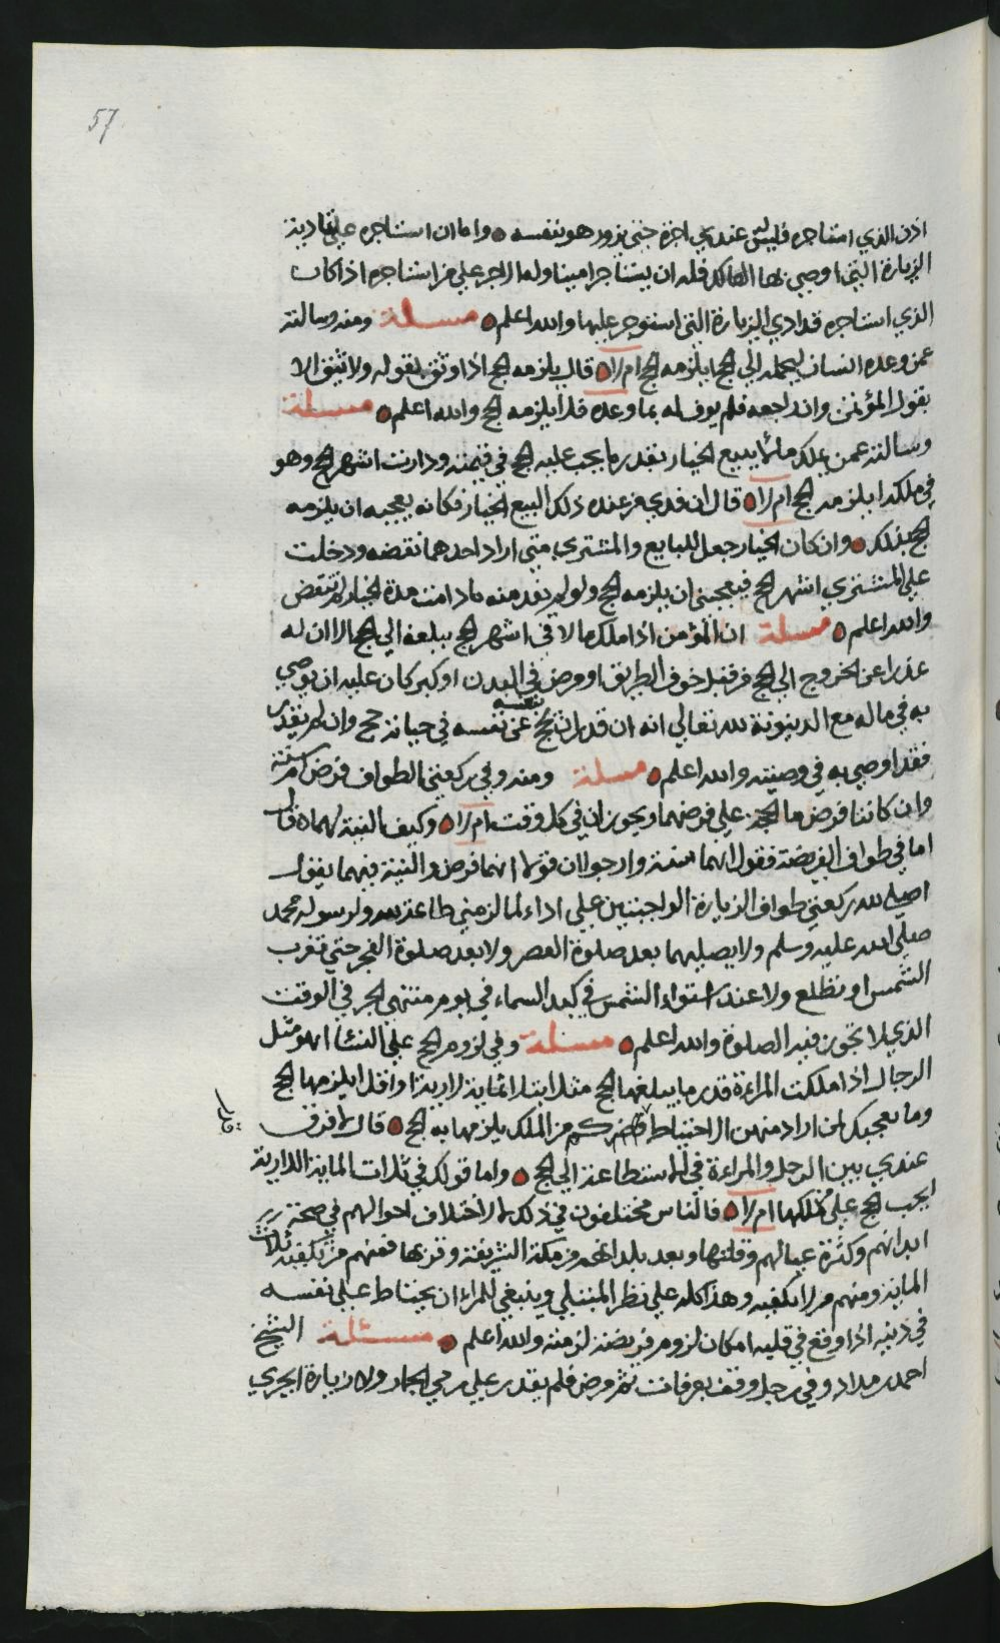 57
اذن الذي استاجره فليس عندي اجرة حتى يزور هو بنفسه ه واما ان استاجره على تادية
الزيارة التي اوصى بها الهالك فله ان يستاجر امينا وله الاجر على من استاجره اذا كان
الذي استاجره قد ادى الزيارة التي استوجر عليها والله اعلم ه مسئلة ومنه وسالته
عمن وعده انسان ليحمله الى الحج ايلزمه الحج ام لا ه قال يلزمه الحج اذا وثق بقوله ولا تثق الا
بقول المؤتمن وان رجعه فلم يوف له بما وعده فلا يلزمه الحج والله اعلم ه مسئلة
وسالته عمن يملك مالا ببيع الخيار بقدر ما يجب عليه الحج في قيمته ودارت اشهر الحج وهو
في ملكه ايلزمه الحج ام لا ه قال ان فدي من عنده ذلك البيع الخيار فكانه يعجبه ان يلزمه
الحج بذلك ه وان كان الخيار جعل للبايع والمشتري متى اراد احدهما نقضه ودخلت
على المشتري اشهر الحج فيعجبني ان يلزمه الحج ولو لم يفد منه مادامت مدة الخيار لم تنقض
والله اعلم ه مسئلة ان المؤمن اذا ملك مالا في اشهر الحج يبلغه الى الحج الا ان له
عذرا عن الخروج الى الحج من قبل خوف الطريق او مرض في البدن او كبر كان عليه ان يوصي
به في ماله مع الدينونة لله تعالى انه ان قدر ان يحج بنفسه عن نفسه في حياته حج وان لم يقدر
فقد اوصى به في وصيته والله اعلم ه مسئلة ومنه وفي ركعتي الطواف فرض ام سنة
وان كانتا فرض ما الحجة على فرضهما ويجوزان في كل وقت ام لا ه وكيف النية لهما ه قال
اما في طواف الفريضة فقول انهما سنة وارجو ان قولا انهما فرض والنية فيهما يقول
اصلي لله ركعتي طواف الزيارة الواجبتين علي اداء لما لزمني طاعة لله ولرسوله محمد
صلى الله عليه وسلم ولا يصليهما بعد صلوة العصر ولا بعد صلوة الفجر حتى تغرب
الشمس او تطلع ولا عند استواء الشمس في كبد السماء في يوم منتهى الحر في الوقت
الذي لا تجوز فيه الصلوة والله اعلم ه مسئلة وفي لزوم الحج على النساء اهو مثل
الرجال اذا ملكت المراءة قدر ما يبلغها الحج مثل ابتلا الماية لارية او اقل ايلزمها الحج
وما يعجبك لمن اراد منهن الاحتياط كم من الملك يلزمها به الحج ه قال لا فرق
عندي بين الرجل والمراءة في الاستطاعة الى الحج ه واما قولك في ثلاث الماية اللارية
ايجب الحج على من ملكها ام لا ه فالناس مختلفون في ذلك لاختلاف احوالهم في صحة
ابدانهم وكثرة عيالهم وقلتها وبعد بلدانهم من مكة الشريفة وقربها فمنهم من تكفيه ثلاث
الماية ومنهم من لا تكفيه وهذا كله على نظر المبتلي وينبغي للمراء ان يحتاط على نفسه
في دينه اذا وقع في قلبه امكان لزوم فريضة لزمته والله اعلم ه مسئلة الشيخ
احمد بن مداد وفي رجل وقف بعرفات ثم مرض فلم يقدر على رمي الجمار ولا زيارة ايجزي